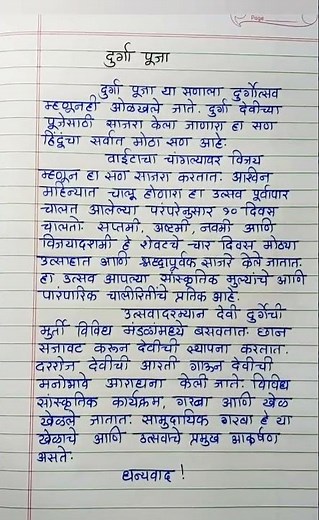 Page
दुर्गा पूजा
दुर्गा पूजा या सणाला दुर्गोत्सव
म्हणूनही ओळखले जाते. दुर्गा देवीच्या
पूजेसाठी साजरा केला जाणारा हा सण
हिंदूंचा सर्वात मोठा सण आहे.
वाईटाचा चांगल्यावर विजय
म्हणून हा सण साजरा करतात. आश्विन
महिन्यात चालू होणारा हा उत्सव पूर्वापार
चालत आलेल्या परंपरेनुसार १० दिवस
चालतो. सप्तमी, अष्टमी, नवमी आणि
विजयादशमी हे शेवटचे चार दिवस मोठ्या
उत्साहात आणि श्रद्धापूर्वक साजरे केले जातात.
हा उत्सव आपल्या सांस्कृतिक मुल्यांचे आणि
पारंपारिक चालीरितींचे प्रतिक आहे.
उत्सवादरम्यान देवी दुर्गेची
मुर्ती विविध मंडळांमध्ये बसवतात. छान
सजावट करून देवीची स्थापना करतात.
दररोज देवीची आरती गाऊन देवीची
मनोभावे आराधना केली जाते. विविध
सांस्कृतिक कार्यक्रम, गरबा आणि खेळ
खेळले जातात. सामुदायिक गरबा हे या
खेळाचे आणि उत्सवाचे प्रमुख आकर्षण
असते.
धन्यवाद !